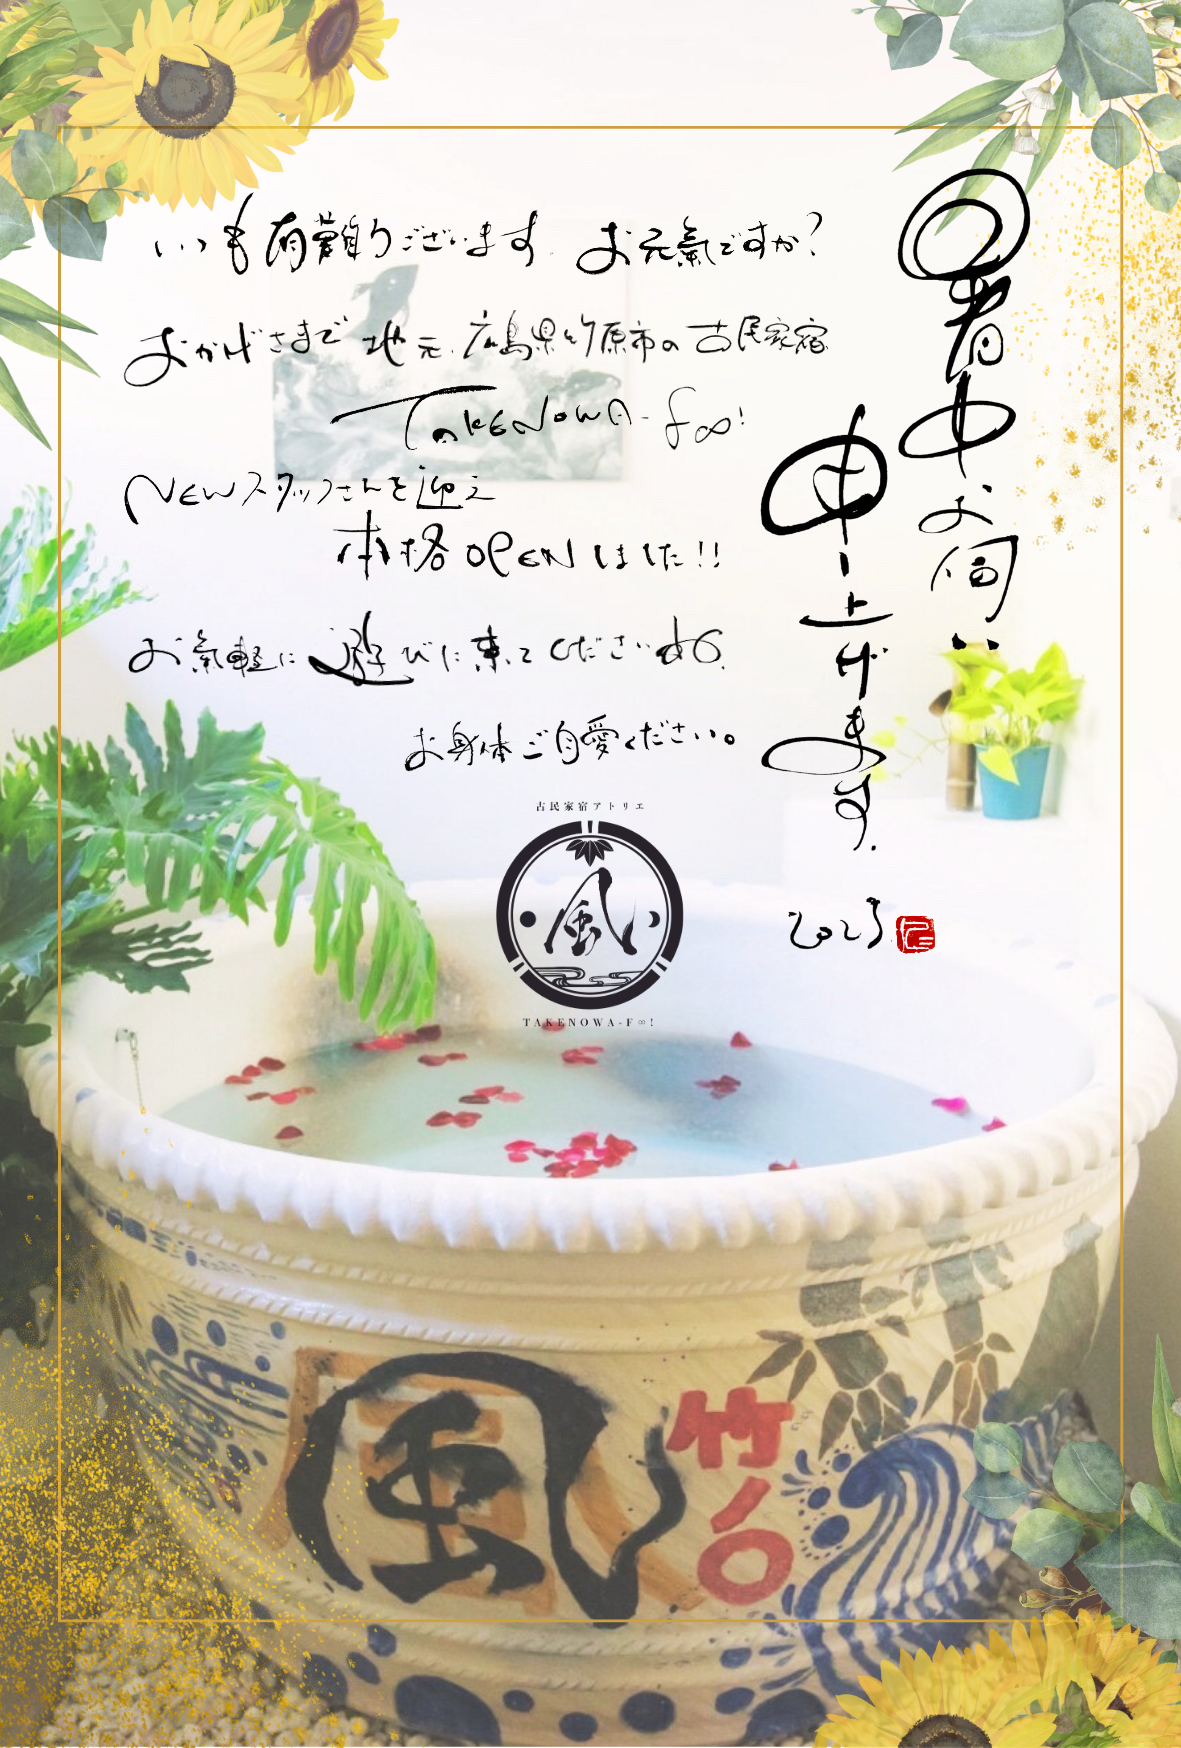 暑中お伺い
申し上げます.
2023
いつも有難うございます. お元気ですか?
おかげさまで 地元.広島県竹原市の古民家宿
TAKENOWA-F∞!
NEWスタッフさんを迎え
本格OPENしました!!
お気軽に遊びに来てくださいね.
お身体ご自愛ください。
古民家宿アトリエ
風い
TAKENOWA-F∞!
風
竹ノ〇